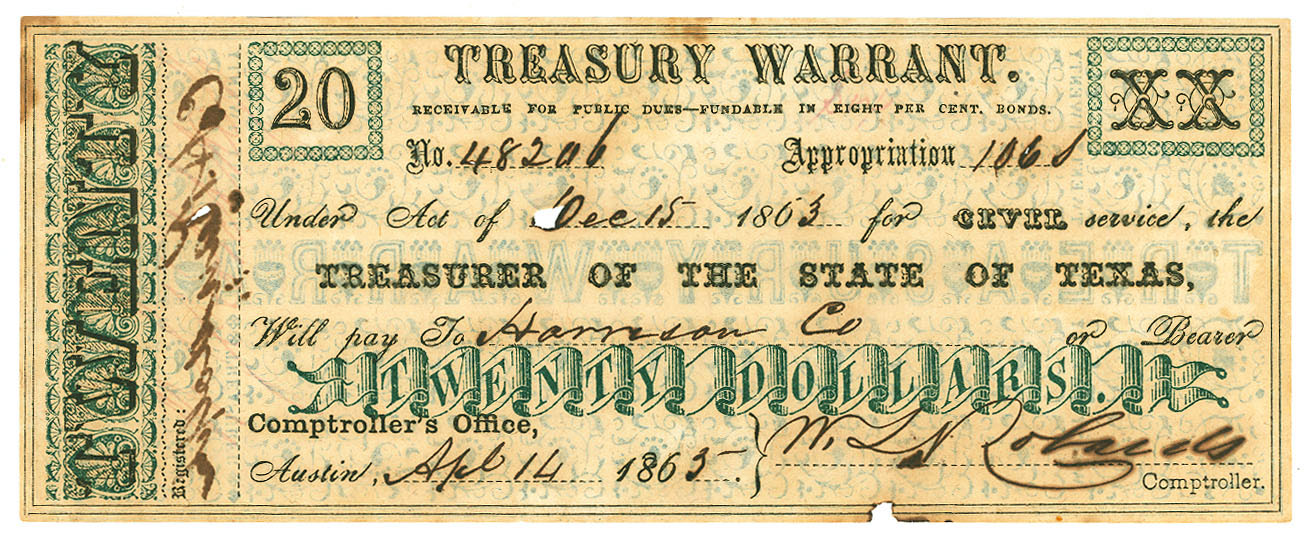 TWENTY
Registered:
20
TREASURY WARRANT.
XX
RECEIVABLE FOR PUBLIC DUES—FUNDABLE IN EIGHT PER CENT. BONDS.
No. 48206 Appropriation 1068
Under Act of Dec 15 1863 for CIVIL service, the
TREASURER OF THE STATE OF TEXAS,
Will pay To Harrison Co or Bearer
TWENTY DOLLARS.
Comptroller's Office,
Austin, Apl 14 1865.
W. L. Robards
Comptroller.